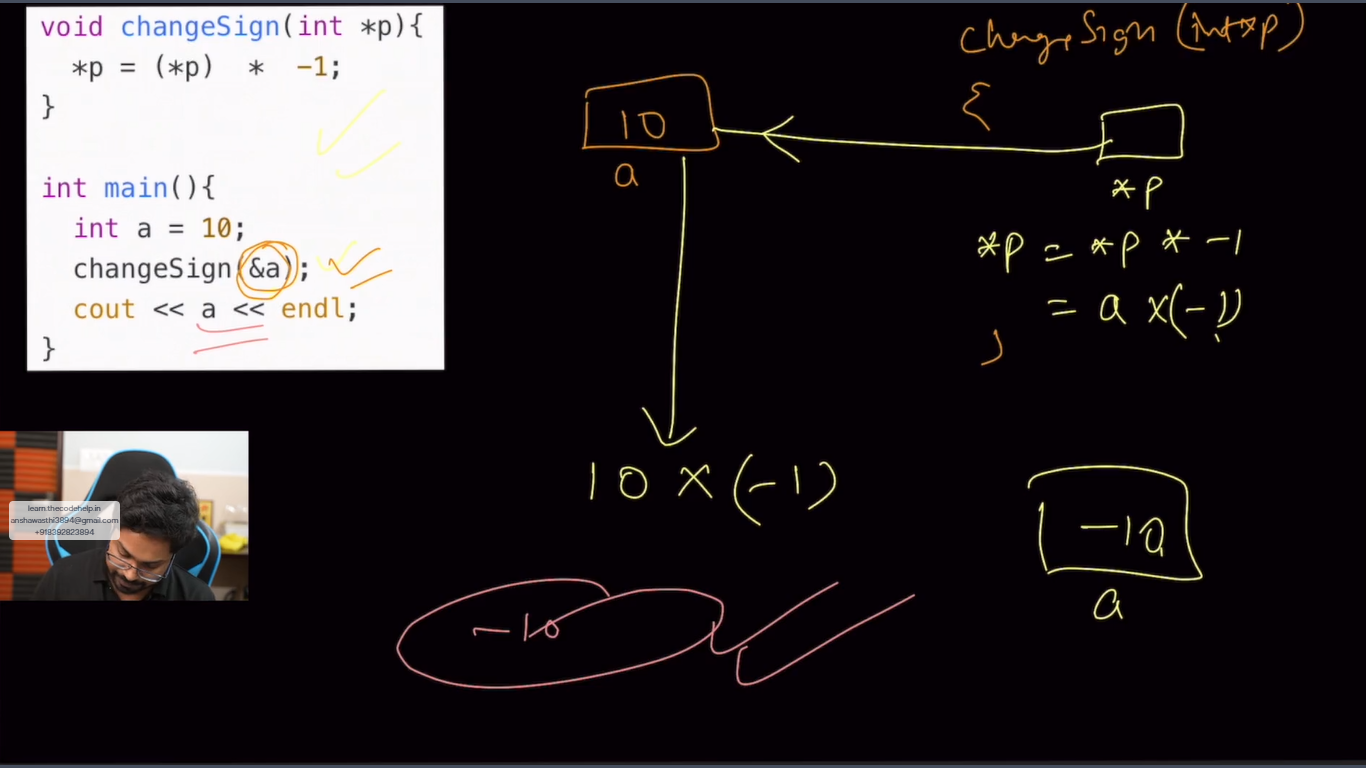 void changeSign(int *p){
*p = (*p) * -1;
}
int main(){
int a = 10;
changeSign(&a);
cout << a << endl;
}
changeSign (int*p)
{
10
a
*p
*p = *p * -1
= a x(-1)
}
10 x (-1)
-10
a
-10
learn.thecodehelp.in
anshawasthi3894@gmail.com
+918392823894